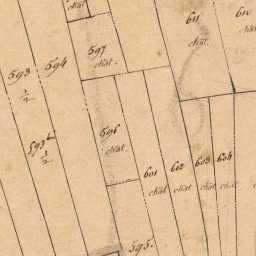 611
chât.
610
chât
597
chât.
593
1/2
594
chât
593b
1/2
596
chât.
601
chât
602
chât
603
chât
604
chât
595.